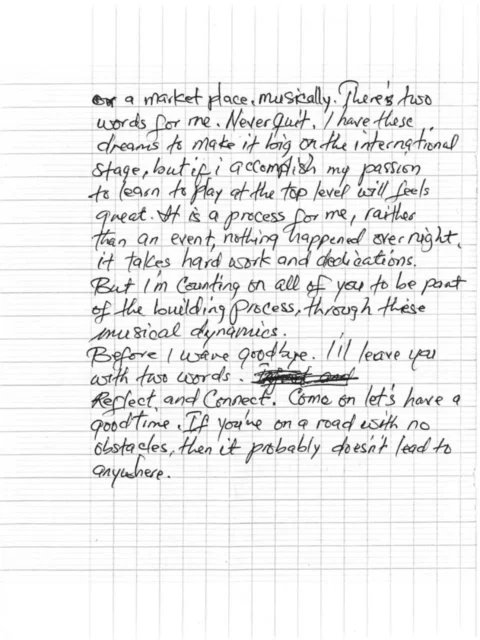 or a market place, musically. There's two
words for me. Never Quit. I have these
dreams to make it big on the international
stage, but if i accomplish my passion
to learn to play at the top level will feels
great. It is a process for me, raither
than an event, nothing happened over night,
it takes hard work and dedications.
But I'm counting on all of you to be part
of the building process, through these
musical dynamics.
Before I wave goodbye. I'll leave you
with two words.
Reflect, and Connect. Come on let's have a
good time. If you're on a road with no
obstacles, then it probably doesn't lead to
anywhere.